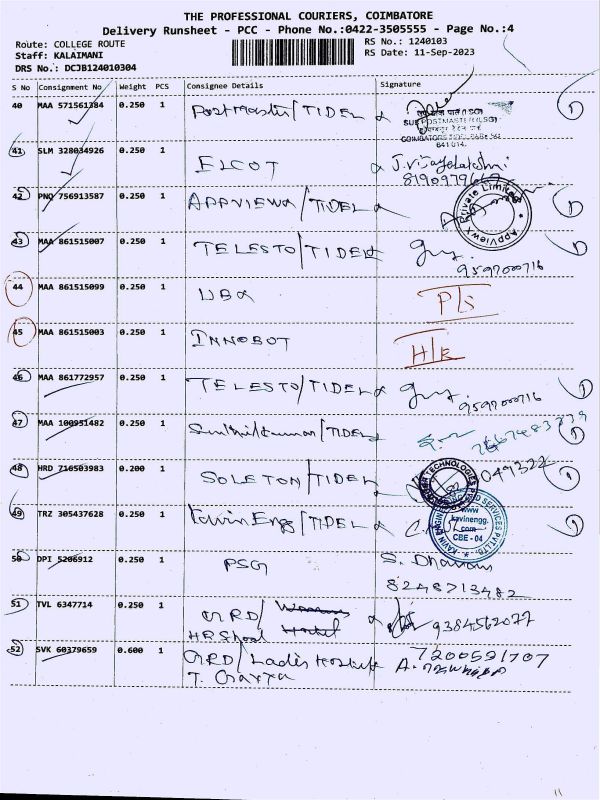 THE PROFESSIONAL COURIERS, COIMBATORE
Delivery Runsheet - PCC - Phone No.:0422-3505555 - Page No.:4
Route: COLLEGE ROUTE
RS No.: 1240103
Staff: KALAIMANI
RS Date: 11-Sep-2023
DRS No.: DCJB124010304
S No Consignment No Weight PCS Consignee Details Signature
40 MAA 571561384 0.250 1 Postmaster/TIDEL
SUB POSTMASTER (LSG)
641 014.
41 SLM 328034926 0.250 1 ELCOT J. Vijayalakshmi
42 PNQ 756913587 0.250 1 APPVIEWX/TIDEL AppViewX Private Limited
43 MAA 861515007 0.250 1 TELESTO/TIDEL
9597000716
44 MAA 861515099 0.250 1 UBA P/S
45 MAA 861515003 0.250 1 INNOBOT H/K
46 MAA 861772957 0.250 1 TELESTO/TIDEL
9597000716
47 MAA 100951482 0.250 1 Senthilkumar/TIDEL
48 HRD 716503983 0.200 1 SOLETON/TIDEL
49 TRZ 305437628 0.250 1 Kavin Engg/TIDEL
www
kavinengg.
com
CBE - 04
50 DPI 5206912 0.250 1 PSG S. Dharani
8248713482
51 TVL 6347714 0.250 1 GRD/ 9384562077
HR School
52 SVK 60379659 0.600 1 GRD/Ladies Hostel 7200591707
T.
11